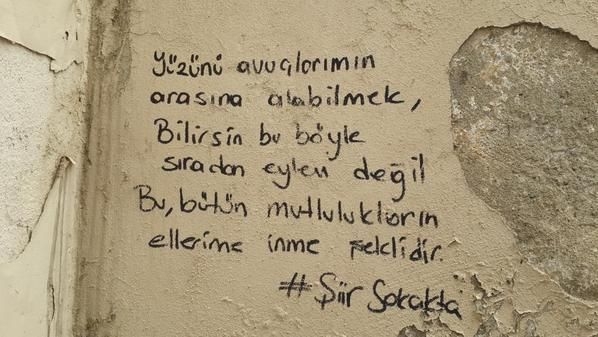 Yüzünü avuçlarımın
arasına alabilmek,
Bilirsin bu böyle
sıradan eylem değil
Bu, bütün mutlulukların
ellerime inme şeklidir.
# Şiir Sokakta